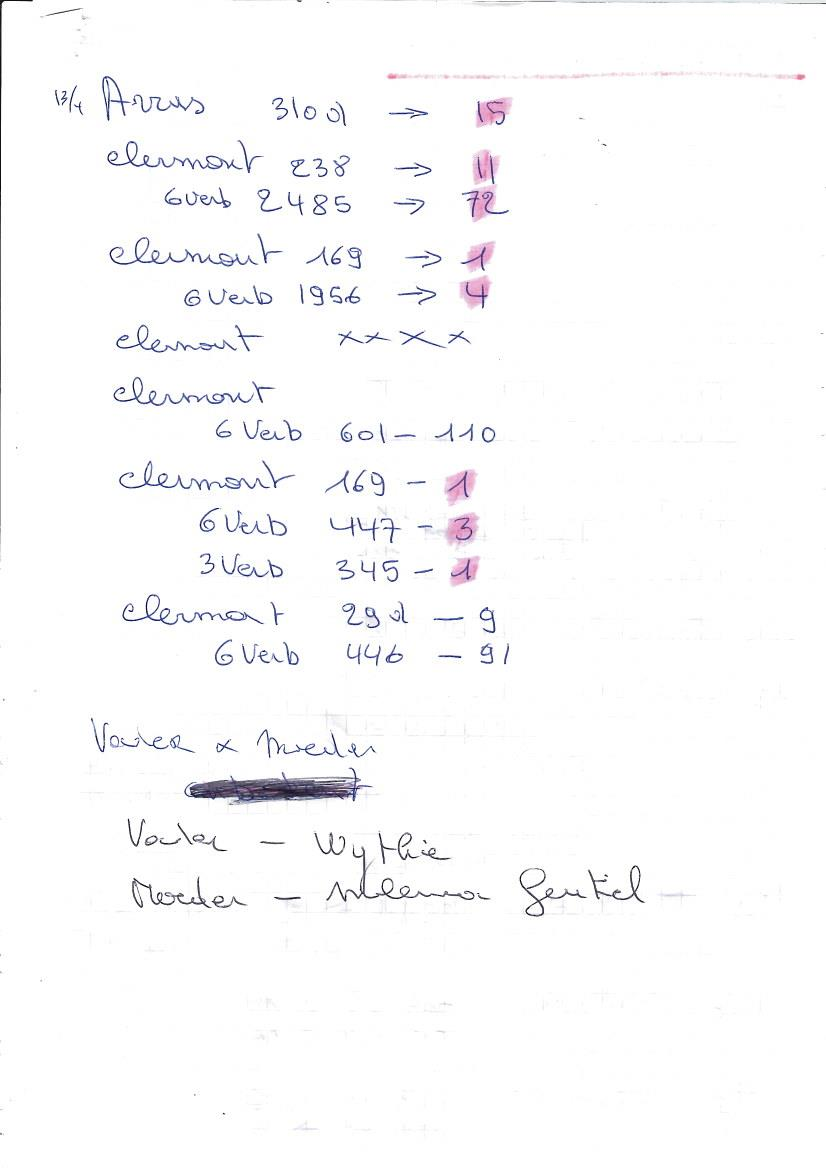 13/4 Arras 310 d → 15
Clermont 238 → 11
6 Verb 2485 → 72
Clermont 169 → 1
6 Verb 1956 → 4
Clermont xxxx
Clermont
6 Verb 601 – 110
Clermont 169 – 1
6 Verb 447 – 3
3 Verb 345 – 1
Clermont 29 d – 9
6 Verb 446 – 91
Vader &
Vader – Wythie
Moeder –